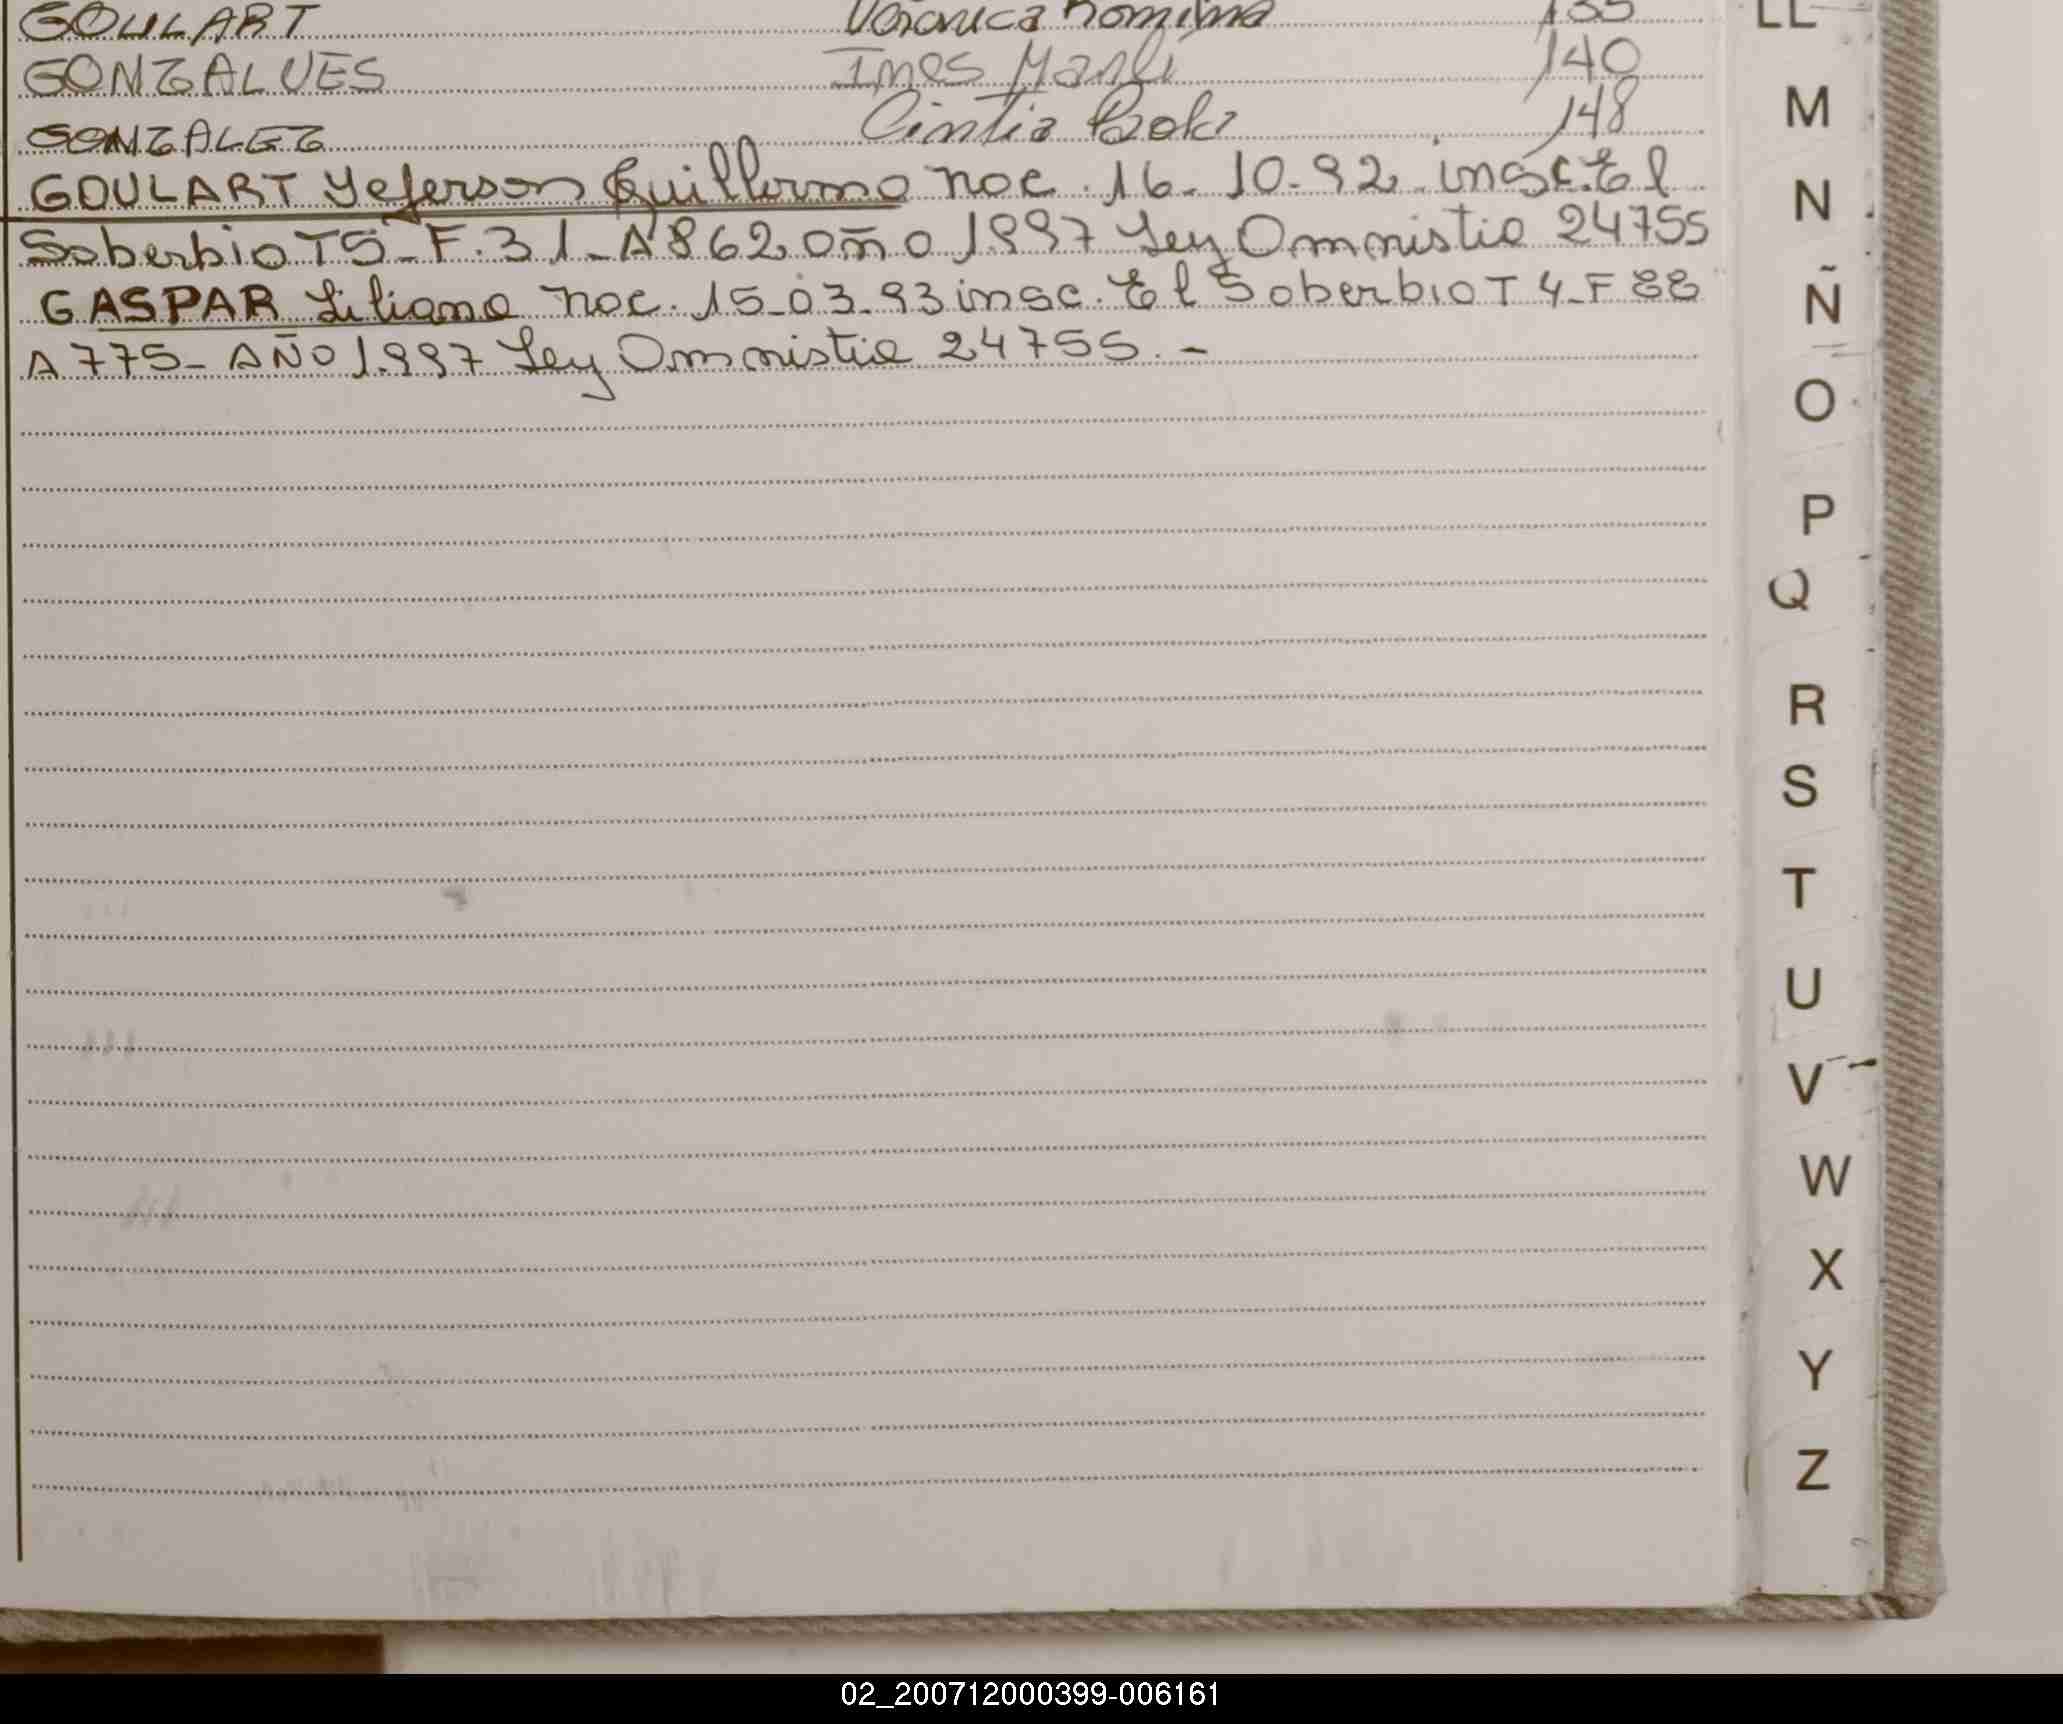 GOULART Veronica Romina 135
GONZALVES Ines Marli 140
GONZALEZ Cintia 148
GOULART Yeferson Guillermo noc. 16-10-92 insc. El
Soberbio T5-F.31-A862 año 1.997 Ley Omnistia 24755
GASPAR Liliana noc. 15-03-93 insc. El Soberbio T4-F88
A775-AÑO 1.997 Ley Omnistia 24755.-
LL
M
N
Ñ
O
P
Q
R
S
T
U
V
W
X
Y
Z
02_200712000399-006161